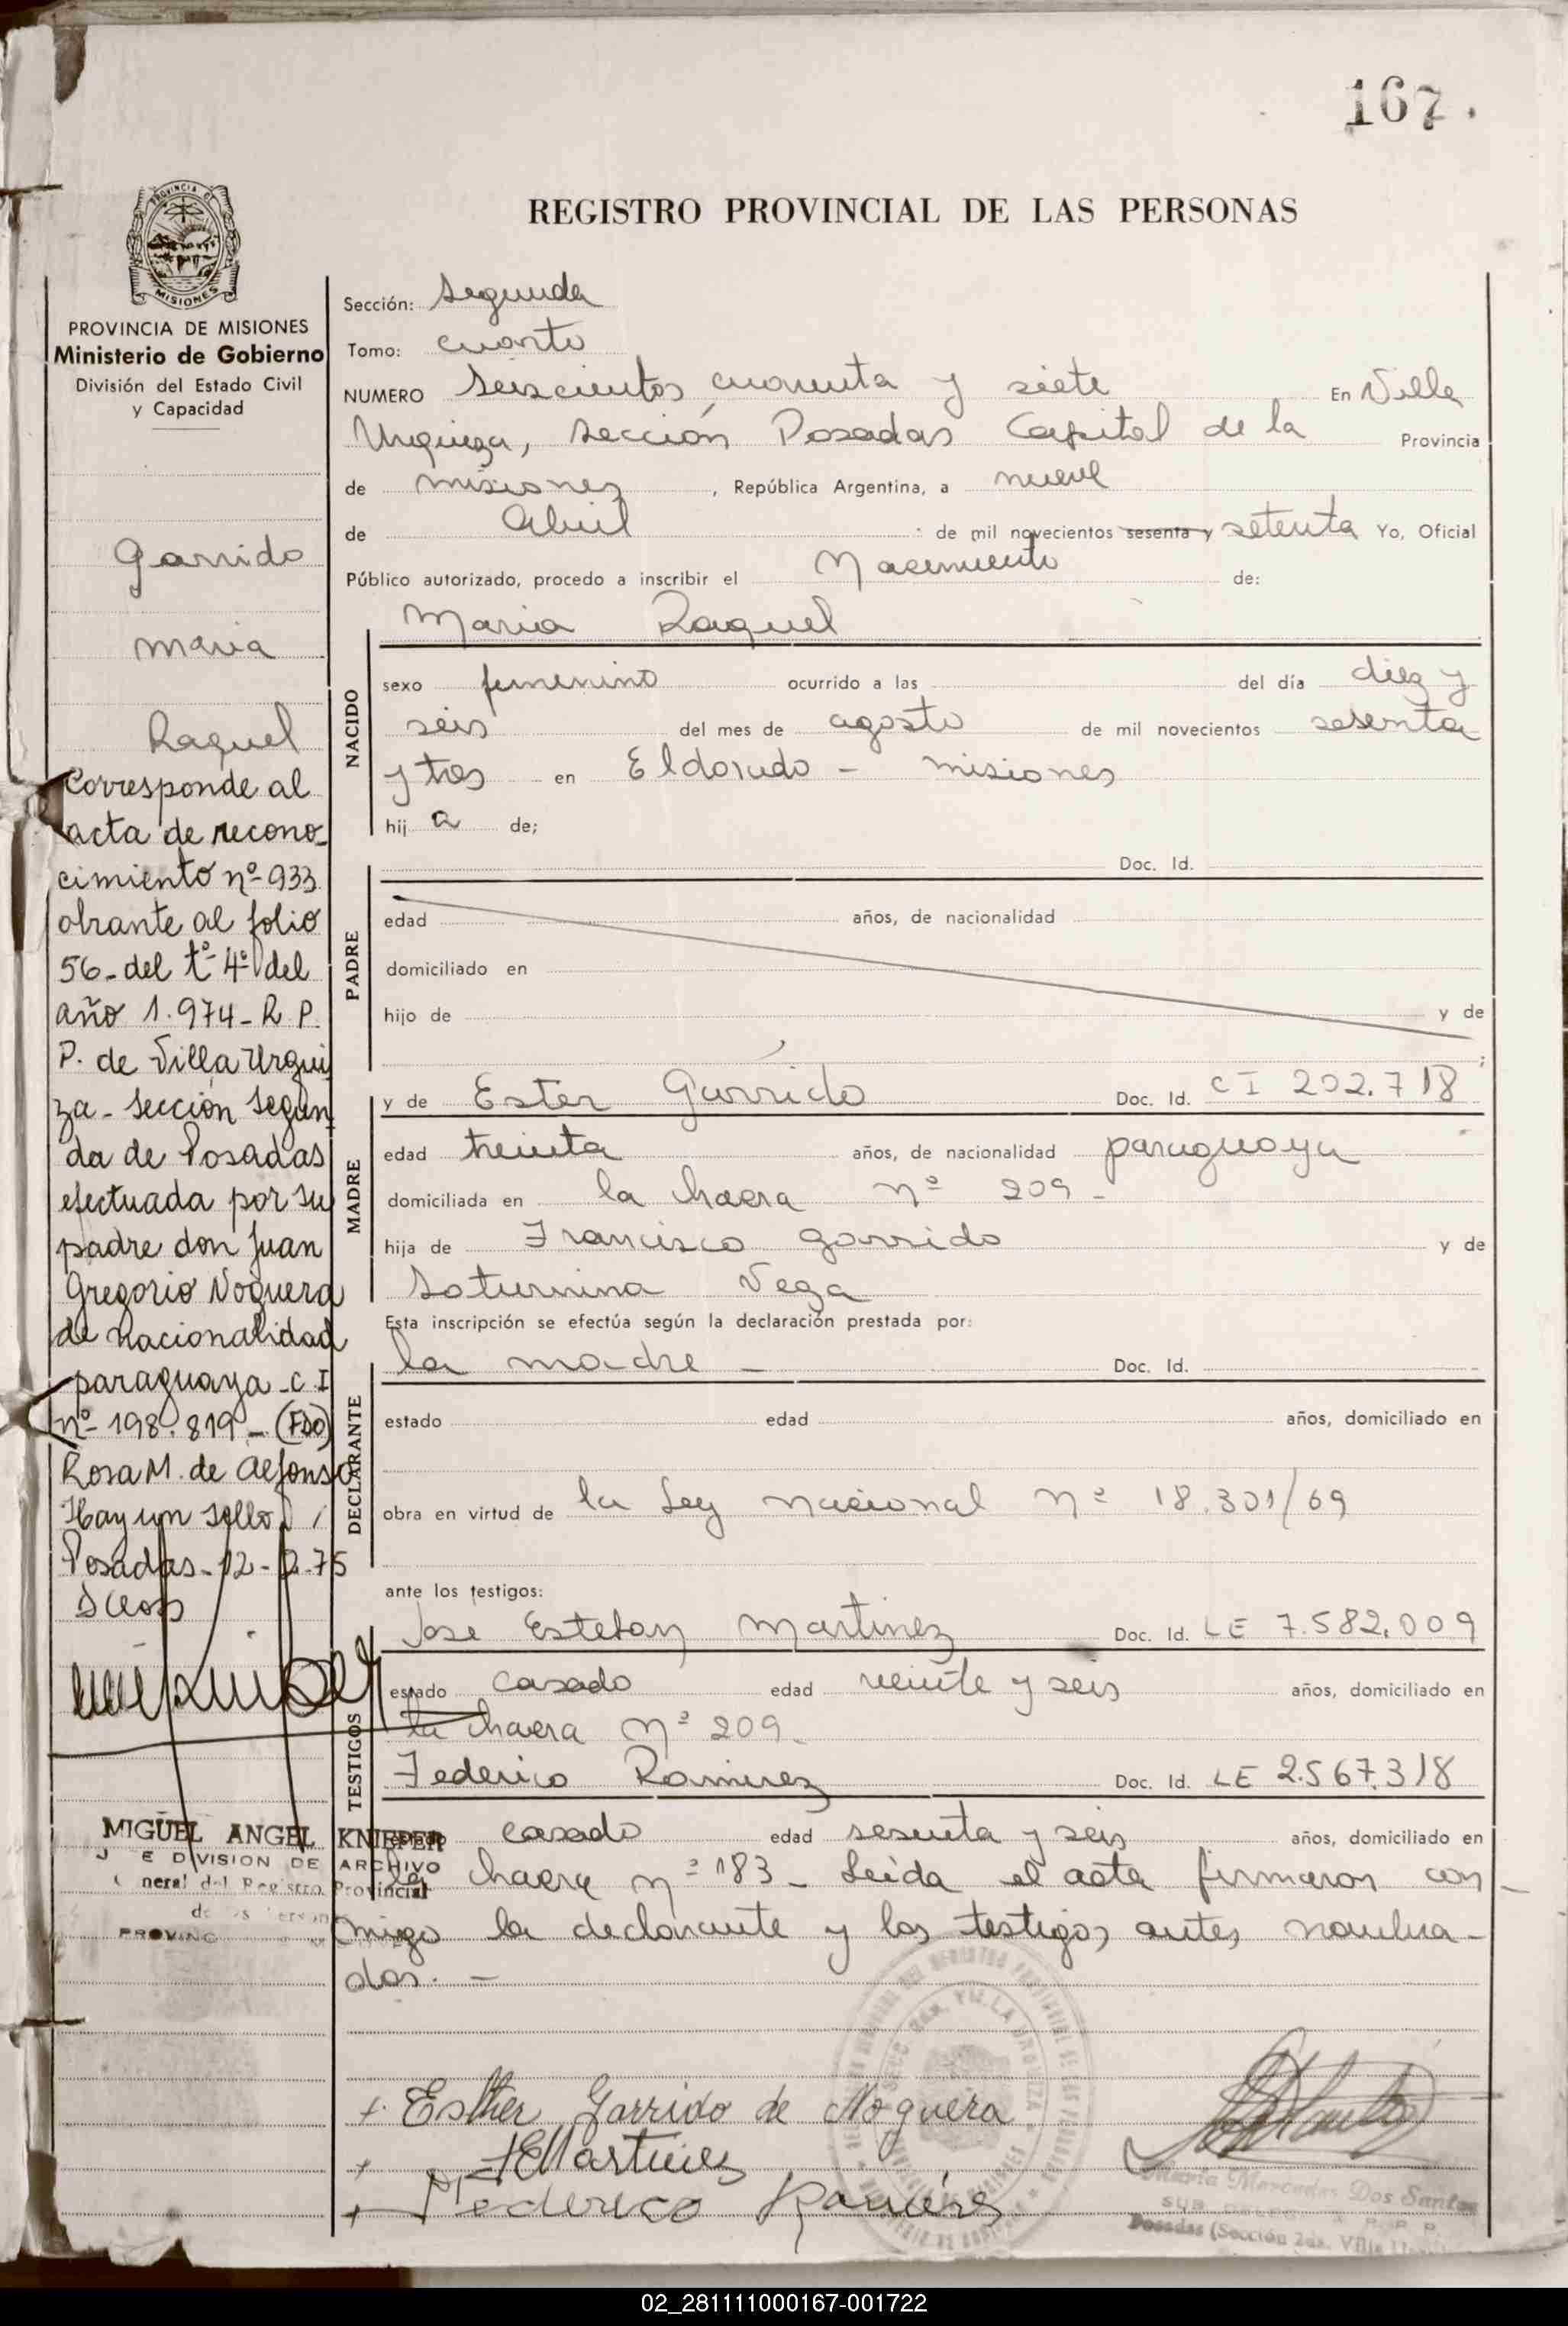 167.
REGISTRO PROVINCIAL DE LAS PERSONAS
PROVINCIA DE MISIONES
Ministerio de Gobierno
División del Estado Civil
y Capacidad
Garrido
Maria
Raquel
Corresponde al
acta de recono-
cimiento nº 933
obrante al folio
56 - del tº 4º del
año 1.974 - R. P.
P. de Villa Urqui
za - Sección Segun
da de Posadas
efectuada por su
padre don Juan
Gregorio Noguera
de nacionalidad
paraguaya - C I
nº 198.819 - (FDO)
Rosa M. de Alfonso
Hay un sello
Posadas - 12 - 2 - 75
MIGUEL ANGEL KNIEPER
DIVISION DE ARCHIVO
neral del Registro Provincial
Sección: Segunda
Tomo: cuarto
NUMERO Seiscientos cuarenta y siete En Villa
Urquiza, Sección Posadas Capital de la Provincia
de misiones , República Argentina, a nueve
de Abril de mil novecientos sesenta y setenta Yo, Oficial
Público autorizado, procedo a inscribir el Nacimiento de:
Maria Raquel
NACIDO
sexo femenino ocurrido a las del día diez y
seis del mes de agosto de mil novecientos sesenta
y tres en Eldorado - misiones
hij a de;
Doc. Id.
PADRE
edad años, de nacionalidad
domiciliado en
hijo de y de
MADRE
y de Ester Garrido Doc. Id. C I 202.718
edad treinta años, de nacionalidad paraguaya
domiciliada en la chacra nº 209 -
hija de Francisco Garrido y de
Saturnina Vega
Esta inscripción se efectúa según la declaración prestada por:
DECLARANTE
la madre - Doc. Id.
estado edad años, domiciliado en
obra en virtud de la Ley nacional nº 18.301/69
ante los testigos:
TESTIGOS
Jose Esteban Martinez Doc. Id. LE 7.582.009
estado casado edad veinte y seis años, domiciliado en
la chacra nº 209 -
Federico Ramirez Doc. Id. LE 2.567.318
estado casado edad sesenta y seis años, domiciliado en
la chacra nº 183 - Leida el acta firmaron con-
migo la declarante y los testigos antes nombra-
dos. -
Esther Garrido de Noguera
JEMartinez
Federico Ramirez
Maria Mercedes Dos Santos
Posadas (Sección 2da. Villa
02_281111000167-001722